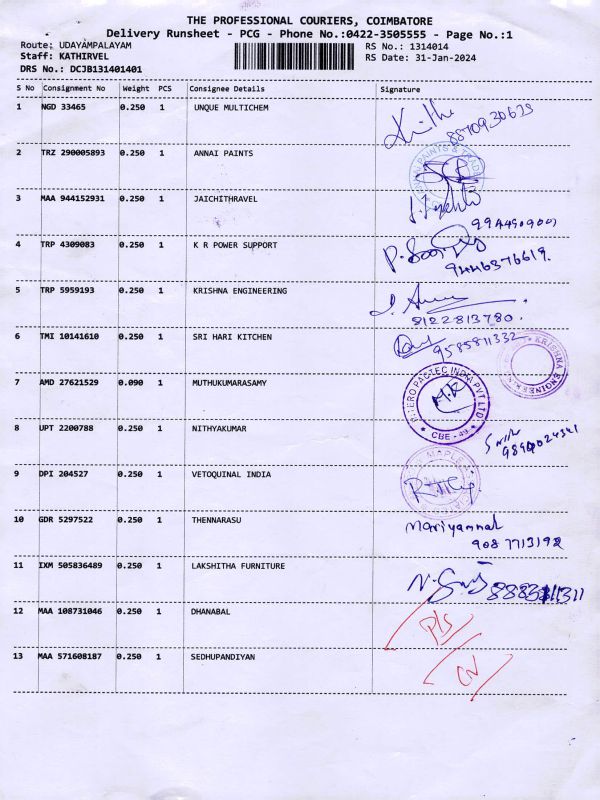 THE PROFESSIONAL COURIERS, COIMBATORE
Delivery Runsheet - PCG - Phone No.:0422-3505555 - Page No.:1
Route: UDAYAMPALAYAM RS No.: 1314014
Staff: KATHIRVEL RS Date: 31-Jan-2024
DRS No.: DCJB131401401
S No Consignment No Weight PCS Consignee Details Signature
1 NGD 33465 0.250 1 UNQUE MULTICHEM
8870930629
2 TRZ 290005893 0.250 1 ANNAI PAINTS
3 MAA 944152931 0.250 1 JAICHITHRAVEL
4 TRP 4309083 0.250 1 K R POWER SUPPORT
9446376619.
5 TRP 5959193 0.250 1 KRISHNA ENGINEERING
8122813780.
6 TMI 10141610 0.250 1 SRI HARI KITCHEN 9585811332
KRISHNA ENGINEERING
7 AMD 27621529 0.090 1 MUTHUKUMARASAMY
M.R
CBE - 49
8 UPT 2200788 0.250 1 NITHYAKUMAR
9 DPI 204527 0.250 1 VETOQUINAL INDIA
10 GDR 5297522 0.250 1 THENNARASU Mariyammal
908 7713192
11 IXM 505836489 0.250 1 LAKSHITHA FURNITURE
12 MAA 108731046 0.250 1 DHANABAL
13 MAA 571608187 0.250 1 SEDHUPANDIYAN